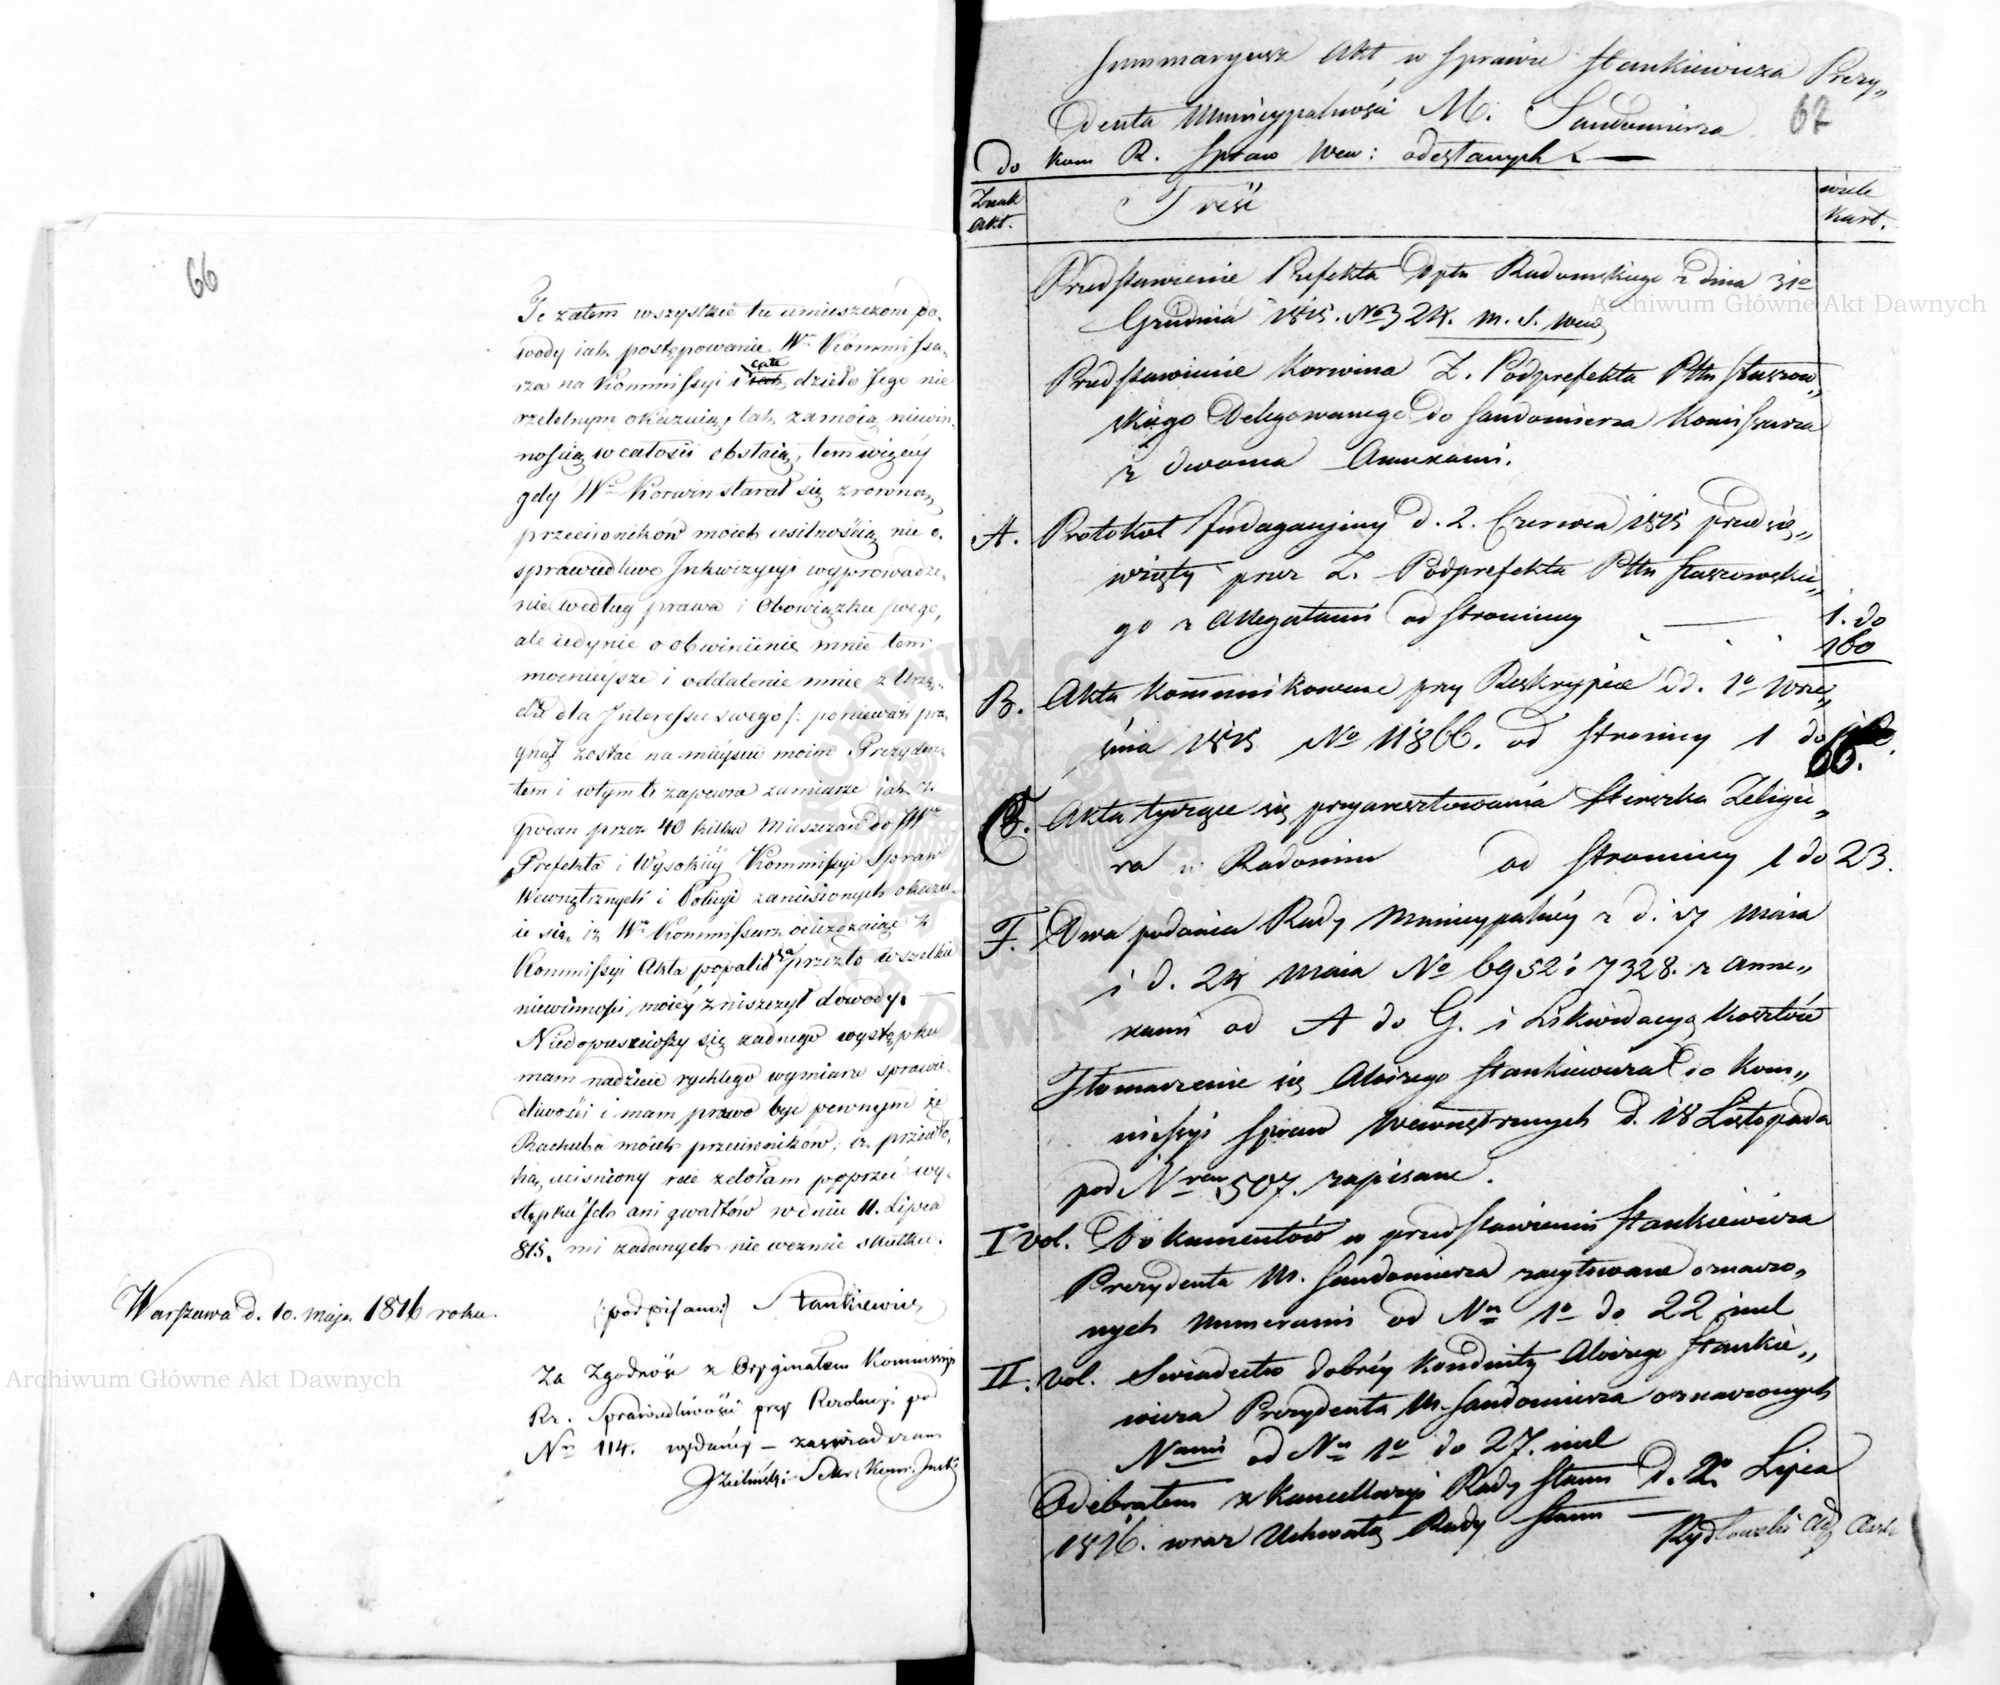 66
Te zatem wszystkie tu umieszczone po-
wody iak postępowanie Wo Kommissa-
rza na Kommissyi i całe dzieło Jego nie
rzetelnym okazuią, tak za moią niewin-
nością w całości obstaią, tem więcéy
gdy Wy Korwin starał się zrowną
przeciwników moich usilnością nie o
sprawiedliwe Inkwizycyi wyprowadze-
nie według prawa i Obowiązku swego,
ale iedynie o obwinienie mnie tem
mocnieysze i oddalenie mnie z Urzę-
du dla Interessu swego /: ponieważ pra-
gnął zostać na mieyscu moim Prezyden-
tem i w tymto zapewne zamiarze iak z
podań przez 40 kilku Mieszczan do JWo
Prefekta i Wysokiéy Kommissyi Spraw
Wewnętrznych i Policyi zaniesionych okazu-
ie się, iż Wy Kommissarz odieżdżaiąc z
Kommissyi Akta popalił a przezto wszelkie
niewinności moiéy zniszczył dowody.
Niedopuściwszy się żadnego występku
mam nadzieię rychłego wymiaru sprawie-
dliwości i mam prawo być pewnym że
Rachuba moich przeciwników, iż przewło-
ką uciśniony nie zdołam poprzeć wy-
stępku Ich ani gwałtów w dniu 11. Lipca
815. mi zadanych nie weźmie skutku.
Warszawa d. 10. maja 1816 roku.
(:podpisano:) Stankiewicz
Za Zgodność z Oryginałem Kommissyi
Rz. Sprawiedliwości przy Rezolucyi pod
Nm 114. wydanéy – zaświadczam
Zieliński Sekr. Kom. Just.
Summaryusz Akt w Sprawie Stankiewicza Prezy„
denta Municypalności M. Sandomierza
67
do Kom R. Spraw Wew: odesłanych. —
Znak
Akt.
Treść
wiele
Kart.
Przedstawienie Prefekta Dptu Radomskiego z dnia 31o
Grudnia 1815. No 324. M. S. Wew
Przedstawienie Korwina Z. Podprefekta Pttu Staszow„
skiego Delegowanego do Sandomierza Komissarza
z dwoma Annexami.
A. Protokół Indagacyiny d. 2. Czerwca 1815 przedsię„
wzięty przez Z. Podprefekta Pttu Staszowskie„
go z Allegatami od Stronicy — 1. do
160
B. Akta kommunikowane przy Reskrypcie dd. 1o Wrze„
śnia 1815 No 11866. od Stronicy 1 do
66.
Akta tyczące się przyaresztowania Starszka Zeligie„
ra w Radomiu od Stronicy 1 do 23.
F. Dwa podania Rady Municypalnéy z d. 17 Maia
i d. 24 Maia No 6952 i 7328. z Anne„
xami od A do G. i Likwidacyą kosztów
Tłomaczenie się Aloizego Stankiewicza do Kom„
missyi Spraw Wewnętrznych d. 18 Listopada
pod Nrem 507. zapisane.
I Vol. Dokumentów w przedstawieniu Stankiewicza
Prezydenta M. Sandomierza zacytowane oznaczo„
nych Numerami od Nu 1o do 22 incl
II. Vol. Swiadectw dobréy konduity Aloizego Stankie„
wicza Prezydenta M. Sandomierza oznaczonych
Nami od Nu 1o do 27. incl
Odebrałem z Kancellaryi Rady Stanu d. 2o Lipca
1816. wraz Uchwałą Rady Stanu —
Archiwum Główne Akt Dawnych
Archiwum Główne Akt Dawnych